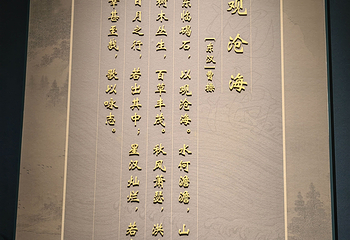 观沧海
[东汉]曹操
东临碣石，以观沧海。水何澹澹，山
树木丛生，百草丰茂。秋风萧瑟，洪
日月之行，若出其中；星汉灿烂，若
幸甚至哉，歌以咏志。